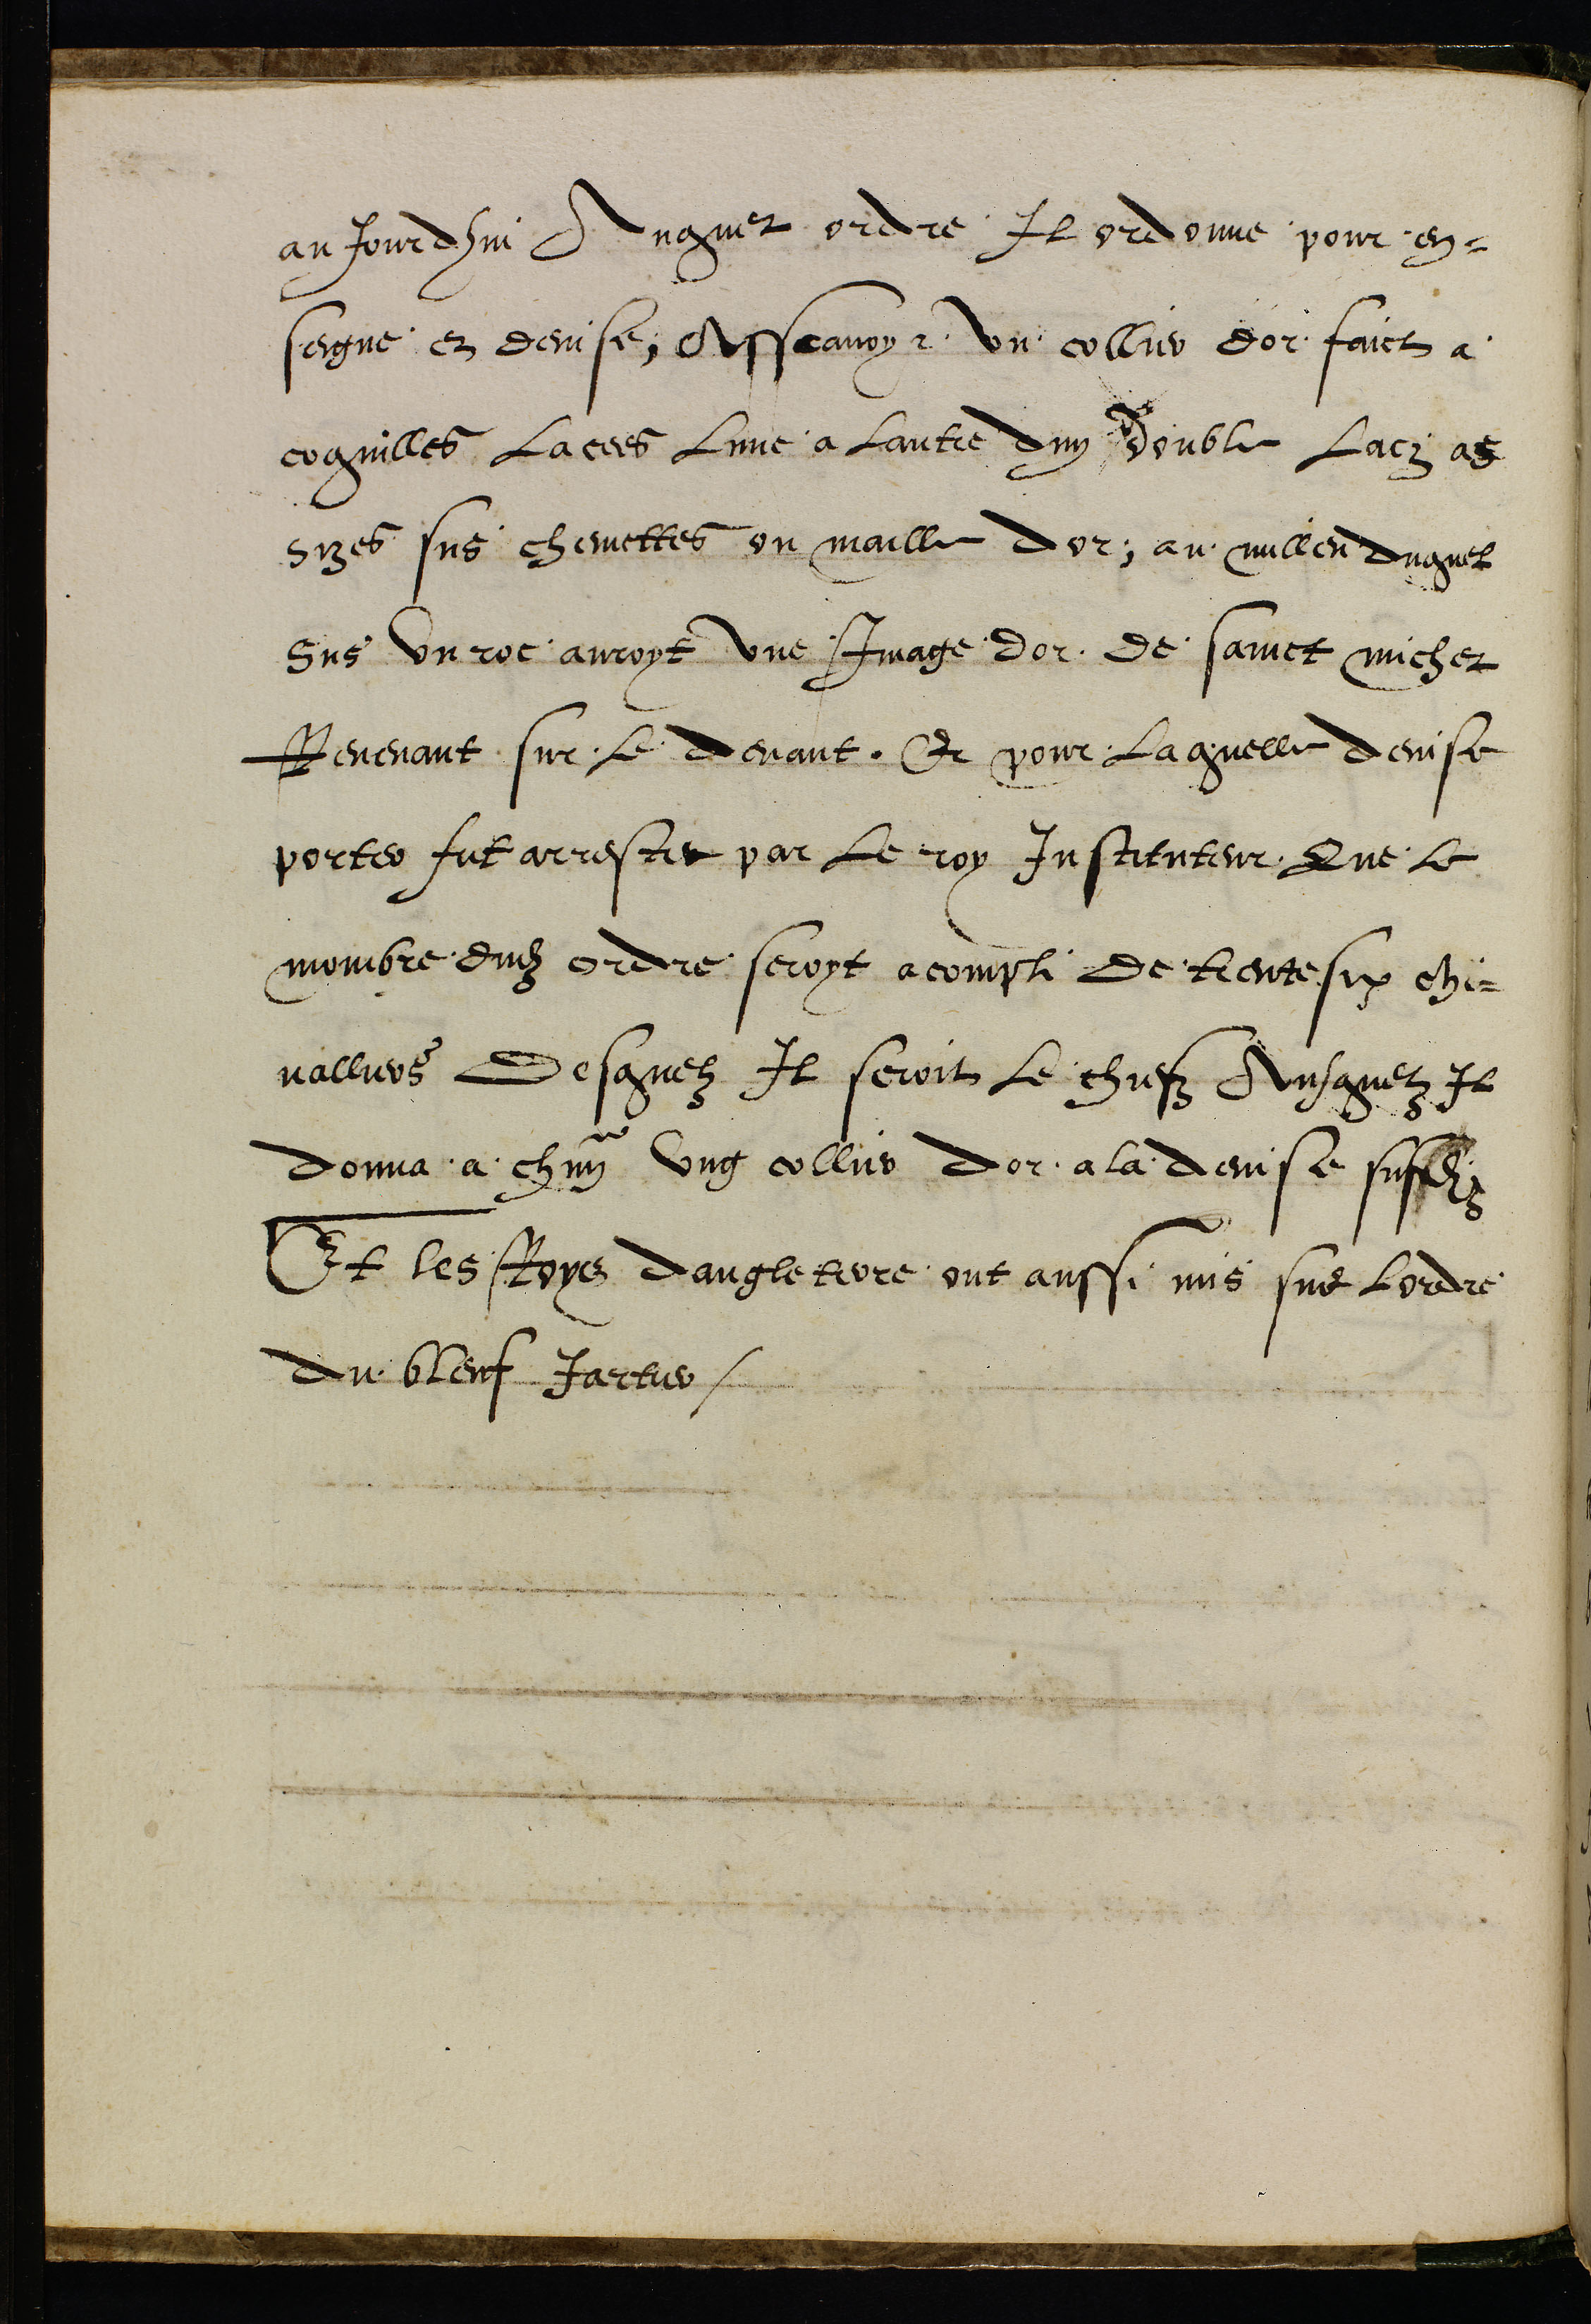 auJourdhui Auquel ordre Il ordonne pour en=
seigne et deuise, Asscauoyr Vn collier dor faict a
coquilles Lacees Lune a Lautre dun double Lacz as
sizes sus chenettes ou maille dor; au millieu duquel
Sus Vn roc auroyt Vne Jmage dor de sainct michel
Reuenant sur le deuant. Et pour laquelle deuise
porter fut arrestee par Le roy Jnstituteur Que le
nombre dudz ordre seroyt acompli de trentesix che=
ualliers Desquelz Il seroit Le chiefz Ausquelz Il
donna a chun Vng collier dor a la deuise susdz
Et les Roys dangleterre ont aussi mis sus Lordre
du bleuf Jartier /